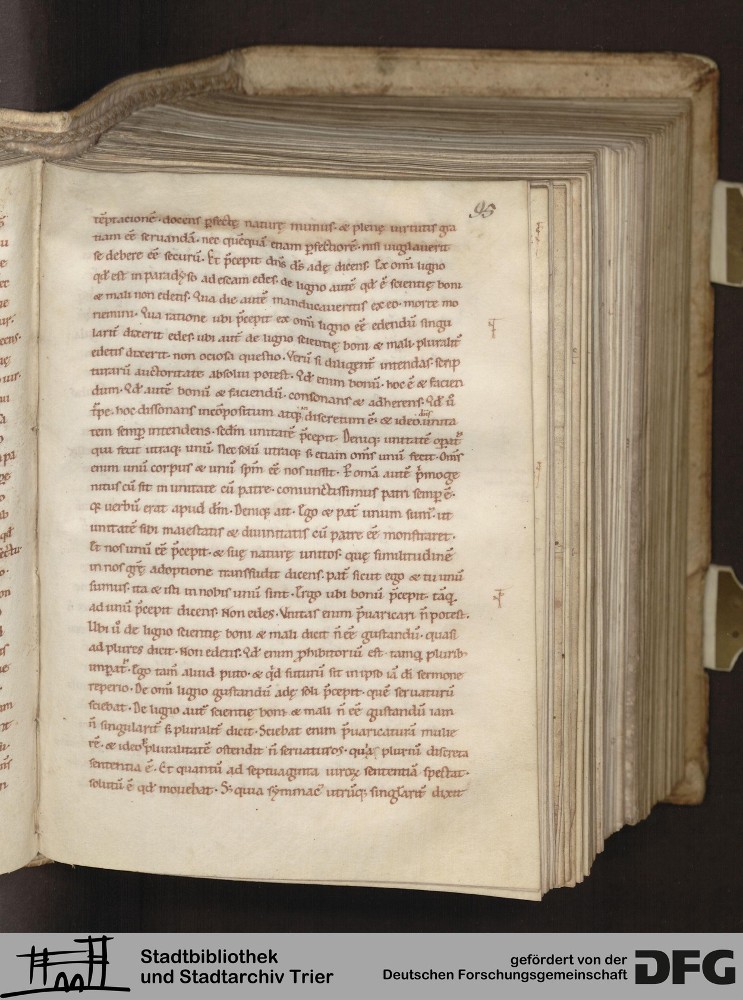 95
tẽptacionẽ · docens ꝑfectę naturę munus · & plenę uirtutis gra
tiam eẽ seruandã · nec quẽquã etiam ꝑfectiorẽ · nisi inuigilauerit
se debere eẽ securũ · Et p̃cepit dñs d̃s adę dicens · Ex omni ligno
qd̃ est in paradyso ad escam edes · de ligno autẽ qd̃ ẽ scientię boni
& mali non edetis · Qua die autẽ manducaueritis ex eo · morte mo
riemini · Qua ratione ubi p̃cepit ex om̃i ligno eẽ edendũ singu
larit̃ dixerit edes · ubi aut̃ de ligno scientię boni & mali · pluralit̃
edetis dixerit · non ociosa questio · Verũ si diligent̃ intendas · scrip
turarũ auctoritate absolui potest · Qd̃ enim bonũ · hoc ẽ & facien
dum · Qd̃ autẽ bonũ & faciendũ · consonans & adherens · Qd̃ ũ
t̃pe · hoc dissonans incõpositum atq; discretum ẽ · & ideo dñs unita
tem semp̱ intendens · scdm̃ unitatẽ p̃cepit · Deniq; unitatẽ oꝑat̃
qui fecit utraq; unũ · Nec solũ utraq; s; etiam om̃s unũ fecit · Om̃s
enim unũ corpus & unũ sp̃m eẽ nos iussit · P
autẽ p̃mogę
nitus cũ sit in unitate cũ patre · coniunctissimus patri semp̱ ẽ ·
q; uerbũ erat apud dm̃ · Deniq; ait · Ego & pat̃ unum sum᷒ · ut
unitatẽ sibi maiestatis & diuinitatis cũ patre eẽ monstraret ·
Et nos unũ eẽ p̃cepit · & suę naturę unitos · quę similitudinẽ
in nos grę̃ adoptione transfudit dicens · pat̃ sicut ego & tu unũ
sumus · ita & isti in nobis unũ sint · Ergo ubi bonũ p̃cepit · tãq̃
ad unũ p̃cepit dicens · Non edes · Vnitas enim p̃uaricari ñ potest ·
Ubi ũ de ligno scientię boni & mali dicit ñ eẽ gustandũ · quasi
ad plures dicit · Non edetis · Qd̃ enim ꝓhibitoriũ est · tamq̃ plurib;
impat̃ · Ego tam̃ aliud puto · & qd̃ futurũ sit in ipso iã d̃i sermone
reperio · De om̃i ligno gustandũ adę soli p̃cepit · quẽ seruaturũ
sciebat · De ligno aut̃ scientię boni & mali ñ eẽ gustandũ iam
ñ singularit̃ s; pluralit̃ dicit · Sciebat enim p̃uaricaturã mulie
rẽ · & ideo pluralitatẽ ostendit ñ seruaturos · quia pluriũ discreta
sententia ẽ · Et quantũ ad septuaginta uiroꝝ sententiã spectat ·
solutũ ẽ qd̃ mouebat · S; quia symmac᷒ utrũq; singularit̃ dixit
Stadtbibliothek
und Stadtarchiv Trier
gefördert von der
Deutschen Forschungsgemeinschaft
DFG